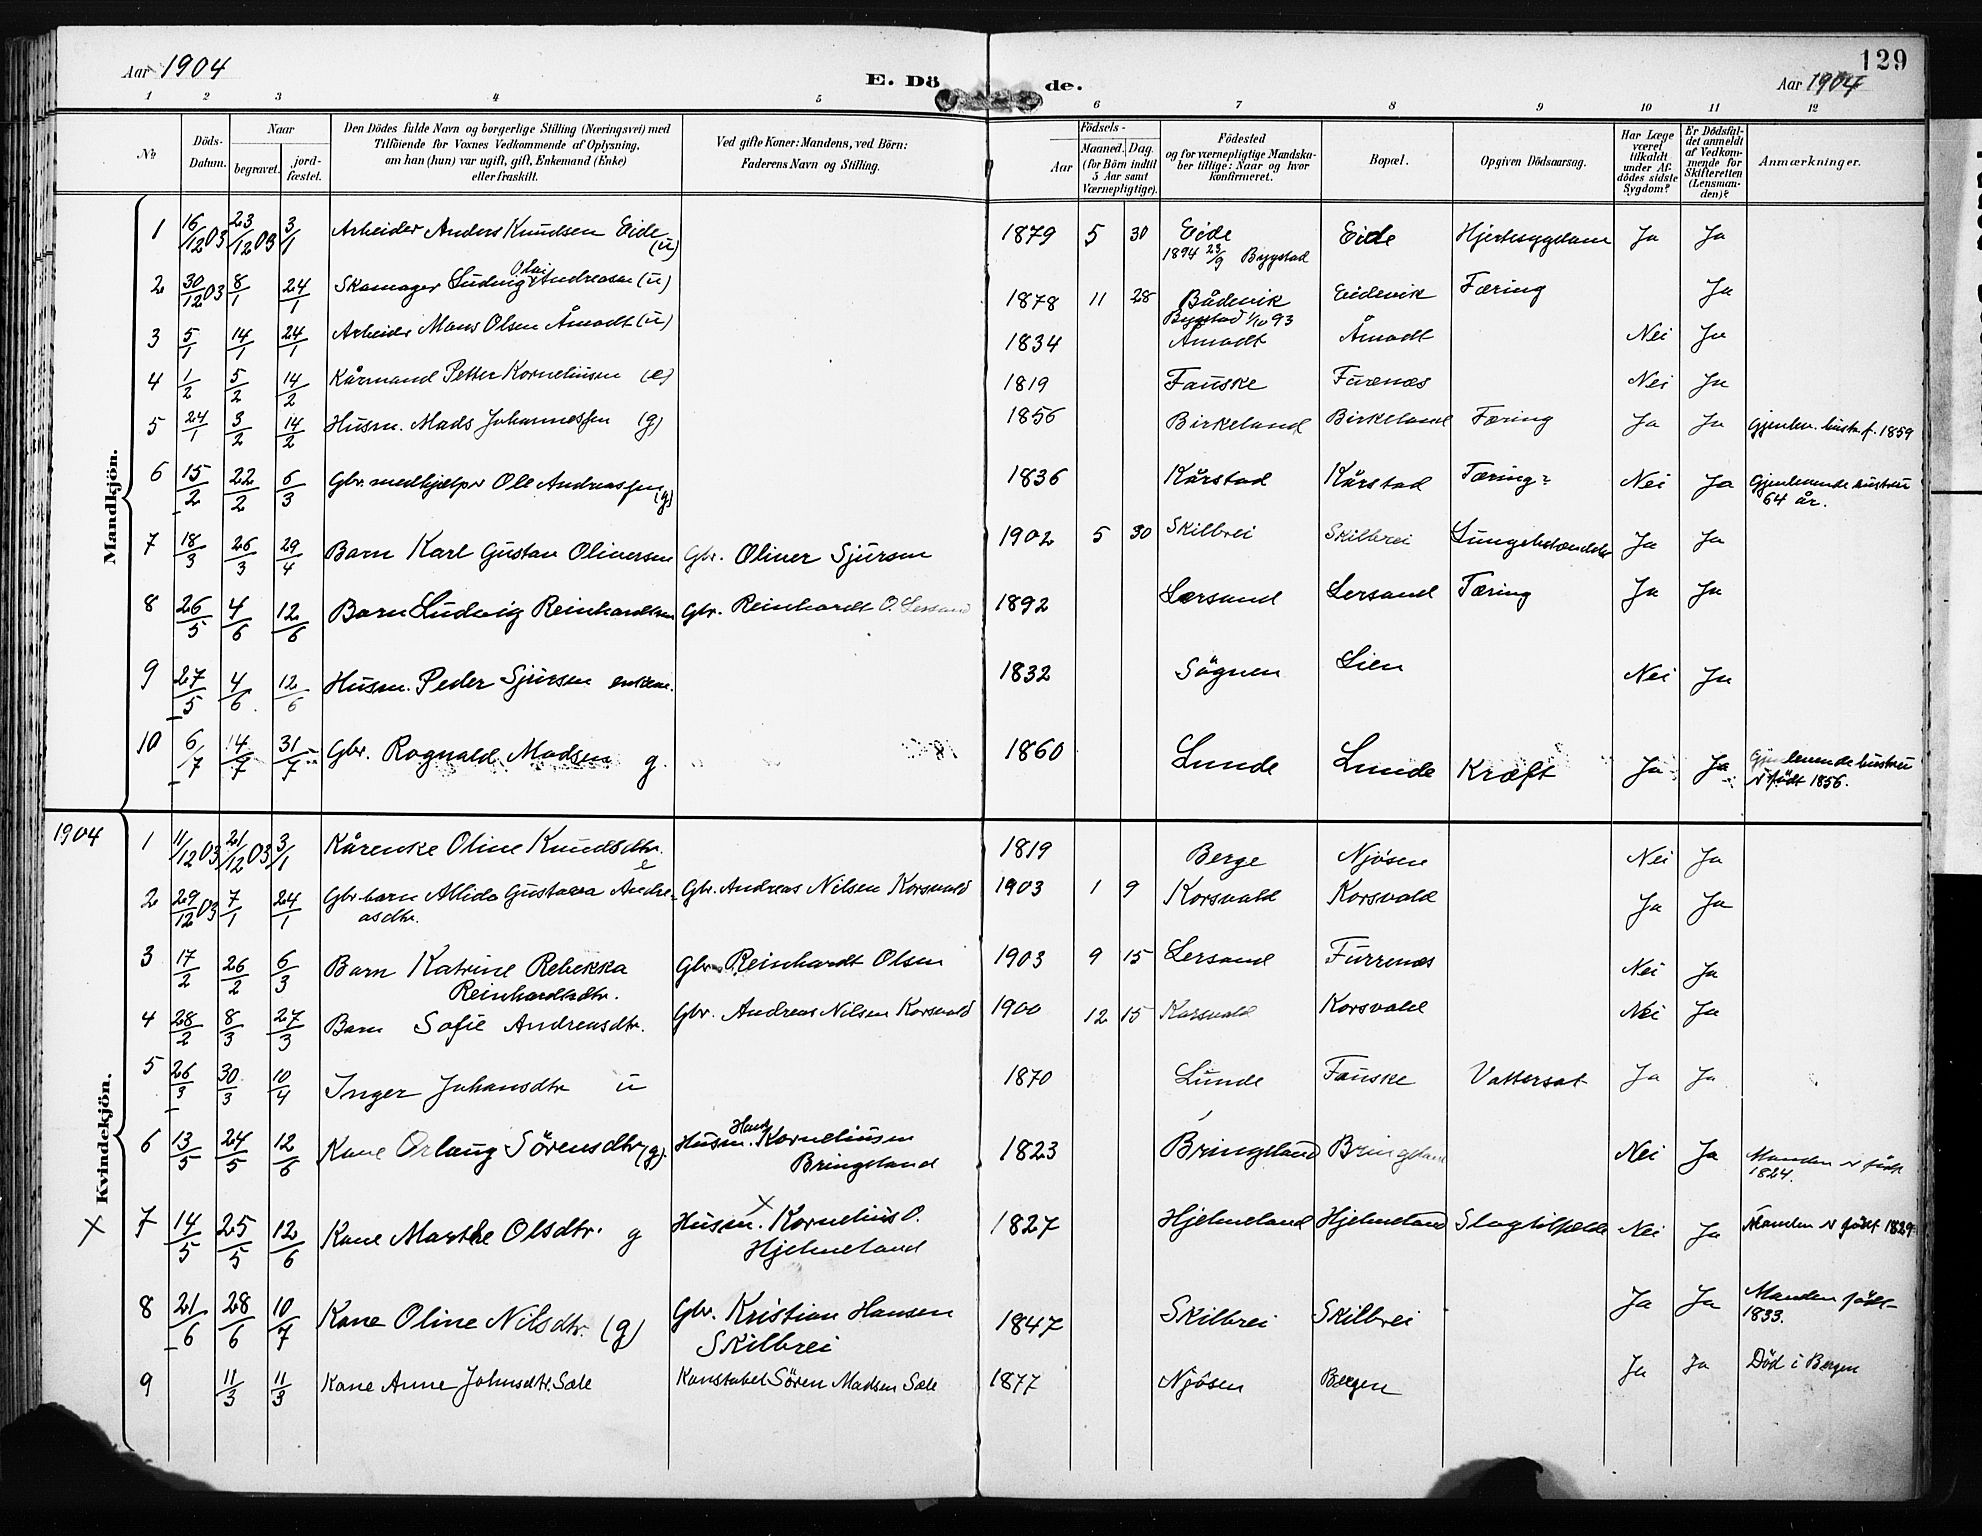 129
Aar 1904
E. Döde.
Aar 1904
1 2 3 4 5 6 7 8 9 10 11 12
No
Döds-Datum.
Naar
begravet.
jord-fæstet.
Den Dödes fulde Navn og borgerlige Stilling (Næringsvei) med
Tilföiende for Voxnes Vedkommende af Oplysning,
om han (hun) var ugift, gift, Enkemand (Enke)
eller fraskilt.
Ved gifte Koner: Mandens, ved Börn:
Faderens Navn og Stilling.
Födsels-
Aar
Maaned. Dag.
(for Börn indtil
5 Aar samt
Værnepligtige).
Födested
og for værnepligtige Mandska-
ber tillige: Naar og hvor
konfirmeret.
Bopæl.
Opgiven Dödsaarsag.
Har Læge
været
tilkaldt
under Af-
dödes sidste
Sygdom?
Er Dödsfal-
det anmeldt
af Vedkom-
mende for
Skifteretten
(Lensman-
den)?
Anmærkninger.
Mandkjön.
1 16/12 03 23/12 03 3/1 Arbeider Anders Knudsen Eide (u) 1879 5 30 Eide Eide Hjertesygdom Ja Ja
1894 23/9 Bygstad
2 30/12 03 8/1 24/1 Skomager Ludvig Olai Andreasen (u) 1878 11 28 Bådevik Eidevik Tæring Ja
Bygstad 1/10 93
3 5/1 14/1 24/1 Arbeider Mons Olsen Åmodt (u) 1834 Åmodt Åmodt Nei Ja
4 1/2 5/2 14/2 Kårmand Petter Korneliusen (e) 1819 Fauske Furenæs Nei Ja
5 24/1 3/2 14/2 Husm. Mads Johannessen (g) 1856 Birkeland Birkeland Tæring Ja Ja Gjenlev. hustr. f. 1859
6 15/2 22/2 6/3 Gbr. medhjælper Ole Andreassen (g) 1836 Kårstad Kårstad Tæring? Nei Ja Gjenlevende hustru
64 år.
7 18/3 26/3 29/4 Barn Karl Gustav Oliversen Gbr. Oliver Sjursen 1902 5 30 Skilbrei Skilbrei Lungebetændelse Ja Ja
8 26/5 4/6 12/6 Barn Ludvig Reinhardtsen Gbr. Reinhardt O. Lersand 1892 Lersand Lersand Tæring Ja Ja
9 27/5 4/6 12/6 Husm. Peder Sjursen enkem. 1832 Sögnen Lien Nei Ja
10 6/7 14/7 31/7 Gbr. Rognald Madsen g. 1860 Lunde Lunde Kræft Ja Ja Gjenlevende hustru
er født 1856.
1904
Kvindekjön.
1 11/12 03 21/12 03 3/1 Kårenke Oline Knudsdtr. e 1819 Berge Njøsen Nei Ja
2 29/12 03 7/1 24/1 Gbr. barn Allida Gustava Andre-
asdtr. Gbr. Andreas Nilsen Korsvold 1903 1 9 Korsvold Korsvold Ja Ja
3 17/2 26/2 6/3 Barn Katrine Rebekka
Reinhardtsdtr. Gbr. Reinhardt Olsen 1903 9 15 Lersand Furrenæs Nei Ja
4 28/2 8/3 27/3 Barn Sofie Andreasdtr. Gbr. Andreas Nilsen Korsvold 1900 12 15 Korsvold Korsvold Nei Ja
5 26/3 30/3 10/4 Inger Johansdtr u 1870 Lunde Fauske Vattersot Ja Ja
6 13/5 24/5 12/6 Kone Orlaug Sörensdtr (g). Husm. Hans Korneliusen
Bringeland 1823 Bringeland Bringeland Nei Ja Manden er født
1824.
× 7 14/5 25/5 12/6 Kone Marthe Olsdtr. g Husm. × Kornelius O.
Hjelmeland 1827 Hjelmeland Hjelmeland Slagtilfælde Nei Ja Manden er født 1829
8 21/6 28/6 10/7 Kone Oline Nilsdtr. (g) Gbr. Kristian Hansen
Skilbrei 1847 Skilbrei Skilbrei Ja Ja Manden født
1833.
9 11/3 11/3 Kone Anne Johnsdtr. Sæle Konstabel Sören Madsen Sæle 1877 Njøsen Bergen Ja Ja Död i Bergen